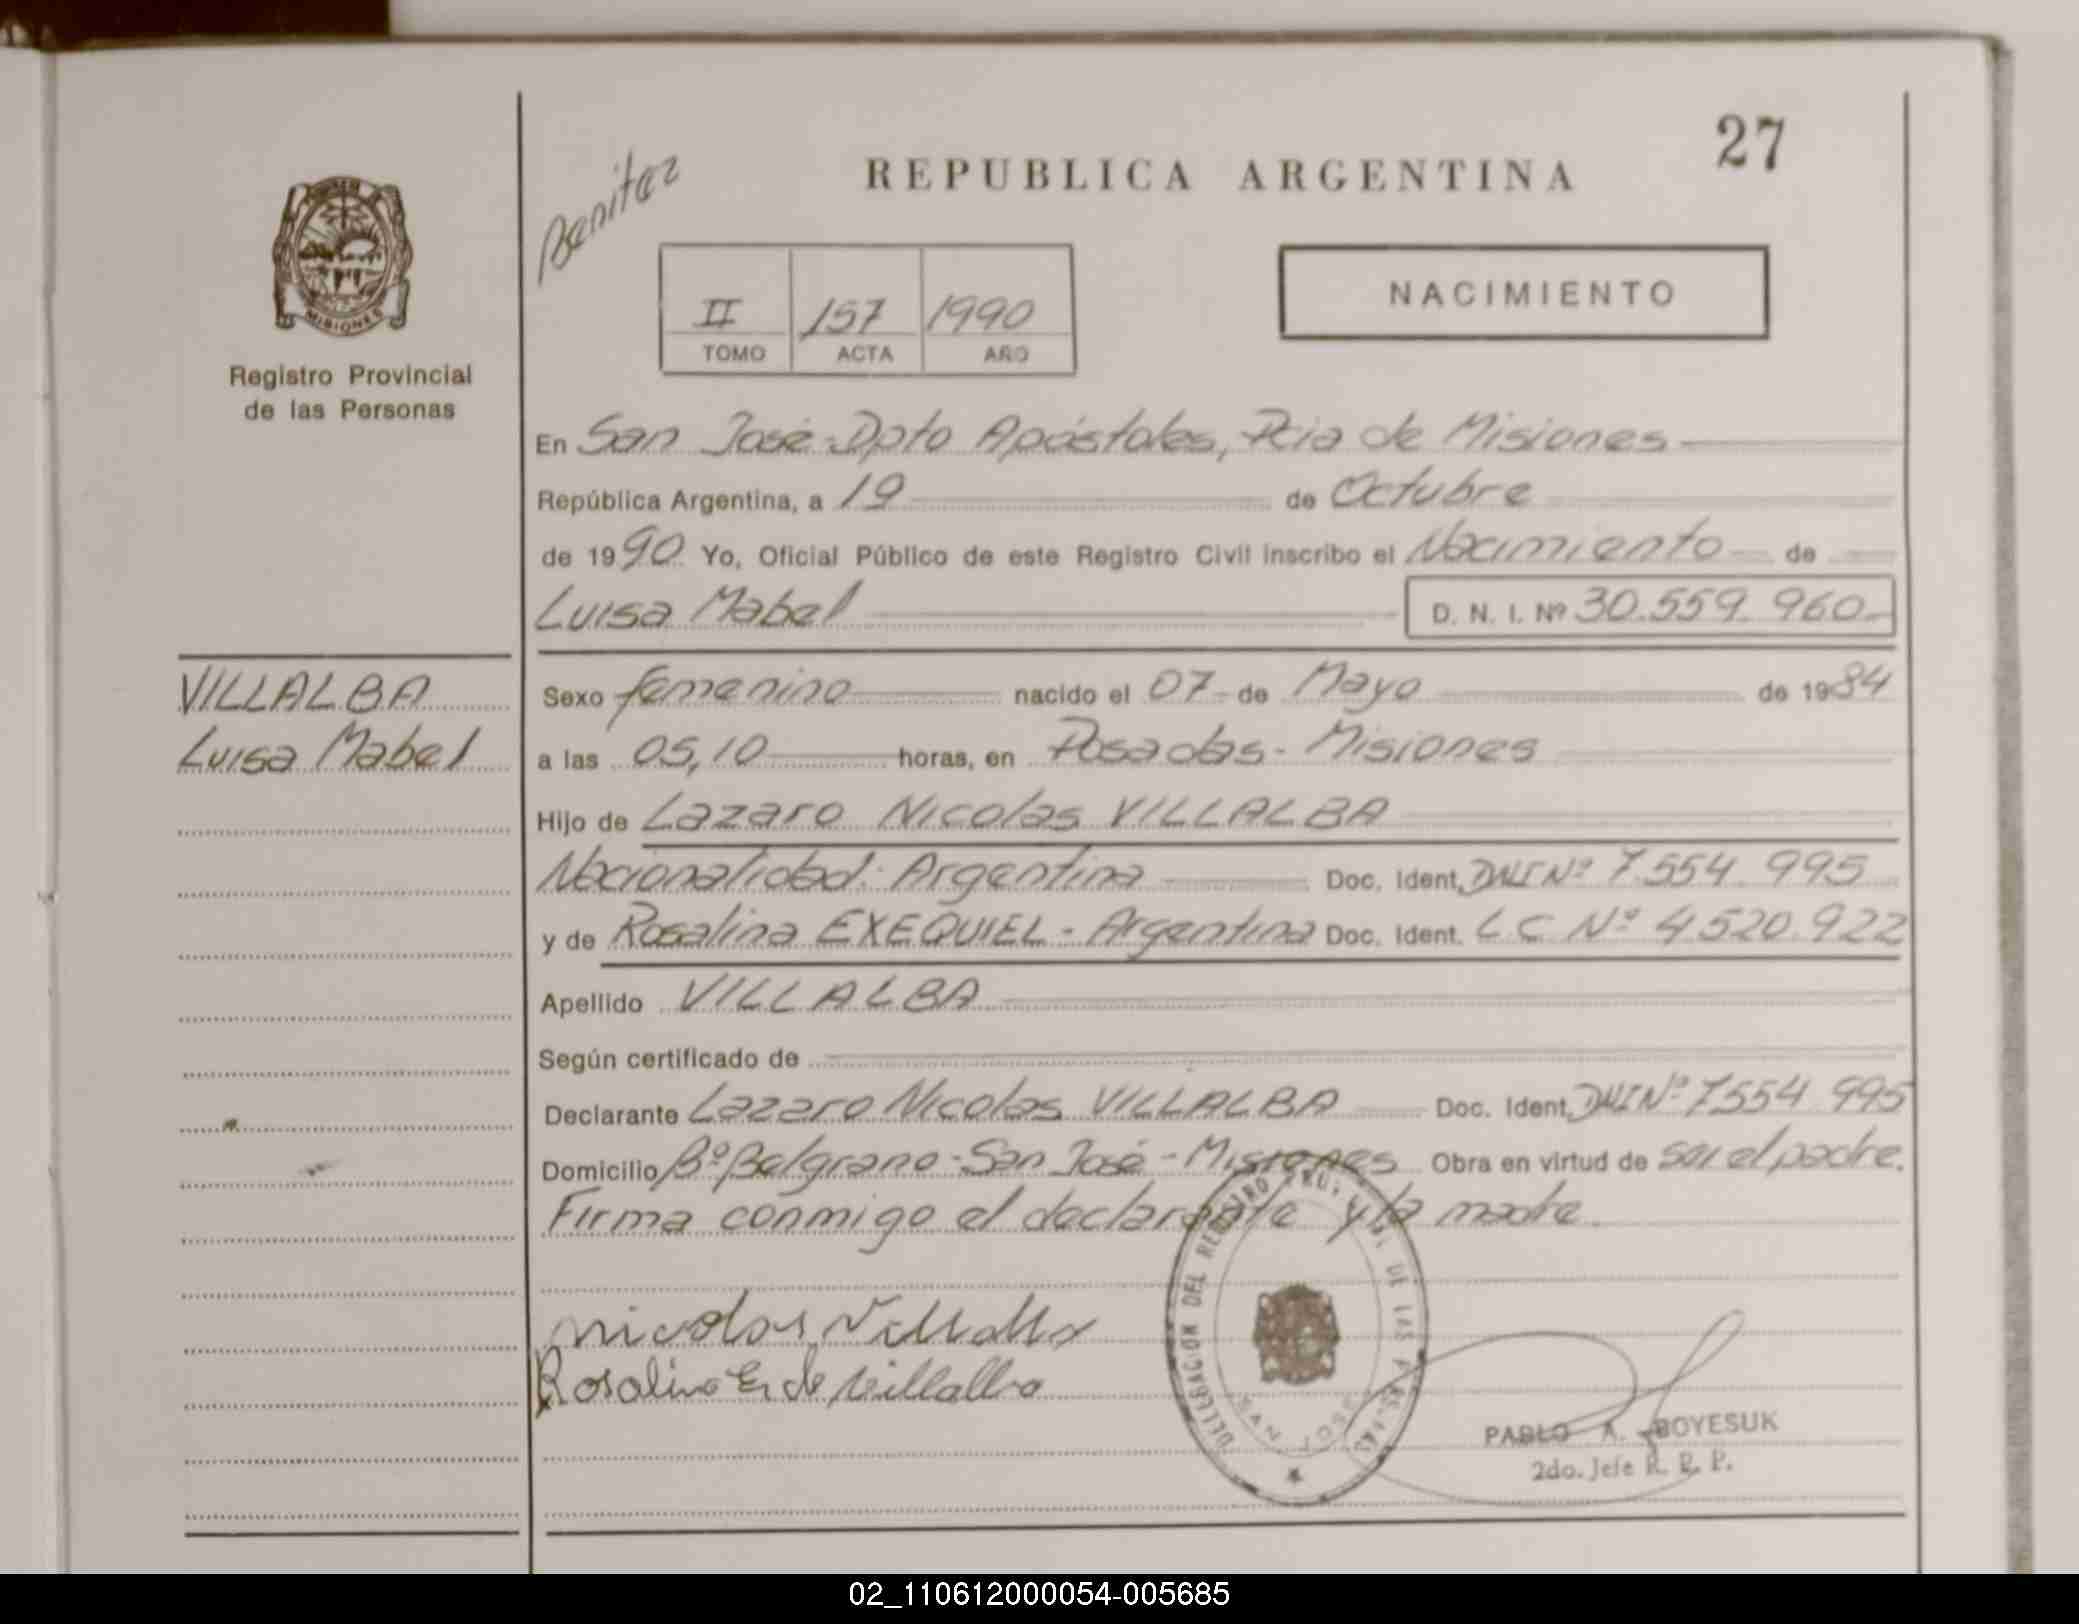 27
REPUBLICA ARGENTINA
Benitez
NACIMIENTO
II 157 1990
TOMO ACTA AÑO
MISIONES
Registro Provincial
de las Personas
En San José - Dpto Apóstoles, Pcia de Misiones
República Argentina, a 19 de Octubre
de 1990 Yo, Oficial Público de este Registro Civil inscribo el Nacimiento de
Luisa Mabel D. N. I. Nº 30.559.960
VILLALBA
Luisa Mabel
Sexo femenino nacido el 07 de Mayo de 1984
a las 05,10 horas, en Posadas - Misiones
Hijo de Lazaro Nicolas VILLALBA
Nacionalidad: Argentina Doc. Ident. DNI Nº 7.554.995
y de Rosalina EXEQUIEL - Argentina Doc. Ident. L C Nº 4.520.922
Apellido VILLALBA
Según certificado de
Declarante Lazaro Nicolas VILLALBA Doc. Ident. DNI Nº 7.554.995
Domicilio Bº Belgrano - San José - Misiones Obra en virtud de ser el padre.
Firma conmigo el declarante y la madre.
Nicolas Villalba
Rosalina E. de Villalba
DELEGACION DEL REGISTRO DE LAS
SAN JOSE
PABLO A. BOYESUK
2do. Jefe R. P. P.
02_110612000054-005685